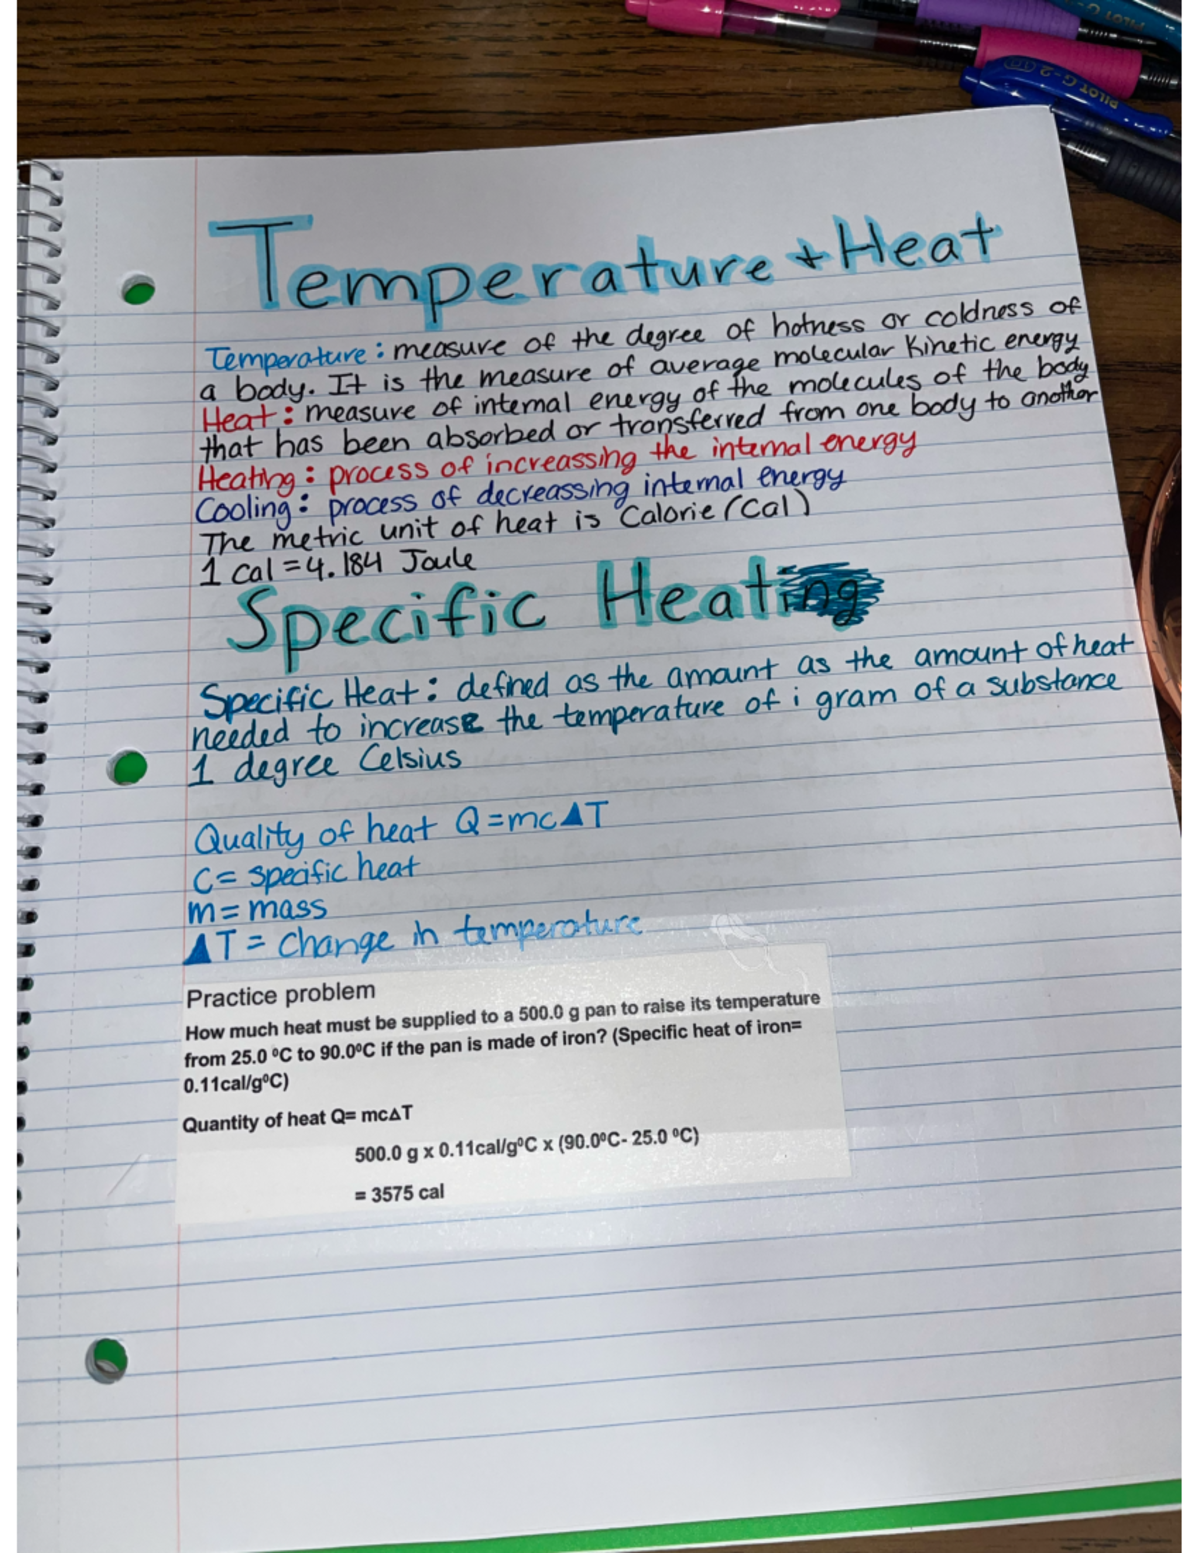 PILOT G-2
PILOT G-2 10
Temperature + Heat
Temperature: measure of the degree of hotness or coldness of
a body. It is the measure of average molecular Kinetic energy
Heat: measure of internal energy of the molecules of the body
that has been absorbed or transferred from one body to another
Heating: process of increassing the internal energy
Cooling: process of decreassing internal energy
The metric unit of heat is Calorie (Cal)
1 cal = 4.184 Joule
Specific Heating
Specific Heat: defined as the amount as the amount of heat
needed to increase the temperature of i gram of a substance
1 degree Celsius
Quality of heat Q=mc▲T
C= specific heat
m= mass
▲T = Change in temperature
Practice problem
How much heat must be supplied to a 500.0 g pan to raise its temperature
from 25.0 ºC to 90.0ºC if the pan is made of iron? (Specific heat of iron=
0.11cal/gºC)
Quantity of heat Q= mc∆T
500.0 g x 0.11cal/gºC x (90.0ºC- 25.0 ºC)
= 3575 cal